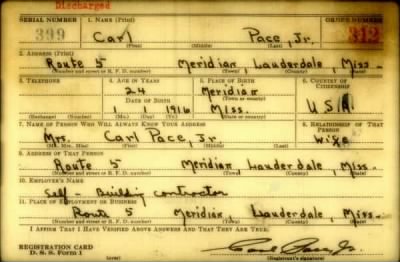 Discharged
SERIAL NUMBER 1. NAME (Print) ORDER NUMBER
399 Carl Pace, Jr. 312
(First) (Middle) (Last)
2. ADDRESS (Print)
Route 5 Meridian, Lauderdale, Miss.
(Number and street or R. F. D. number) (Town) (County) (State)
3. TELEPHONE 4. AGE IN YEARS 5. PLACE OF BIRTH 6. COUNTRY OF CITIZENSHIP
24 Meridian
DATE OF BIRTH (Town or county) USA
1 1 1916 Miss.
(Exchange) (Number) (Mo.) (Day) (Yr.) (State or country)
7. NAME OF PERSON WHO WILL ALWAYS KNOW YOUR ADDRESS 8. RELATIONSHIP OF THAT PERSON
Mrs. Carl Pace, Jr. Wife
(Mr., Mrs., Miss) (First) (Middle) (Last)
9. ADDRESS OF THAT PERSON
Route 5 Meridian, Lauderdale, Miss.
(Number and street or R. F. D. number) (Town) (County) (State)
10. EMPLOYER'S NAME
Self - Building contractor
11. PLACE OF EMPLOYMENT OR BUSINESS
Route 5 Meridian, Lauderdale, Miss.
(Number and street or R. F. D. number) (Town) (County) (State)
I AFFIRM THAT I HAVE VERIFIED ABOVE ANSWERS AND THAT THEY ARE TRUE.
REGISTRATION CARD
D. S. S. Form 1 (Registrant's signature)
Carl Pace Jr.